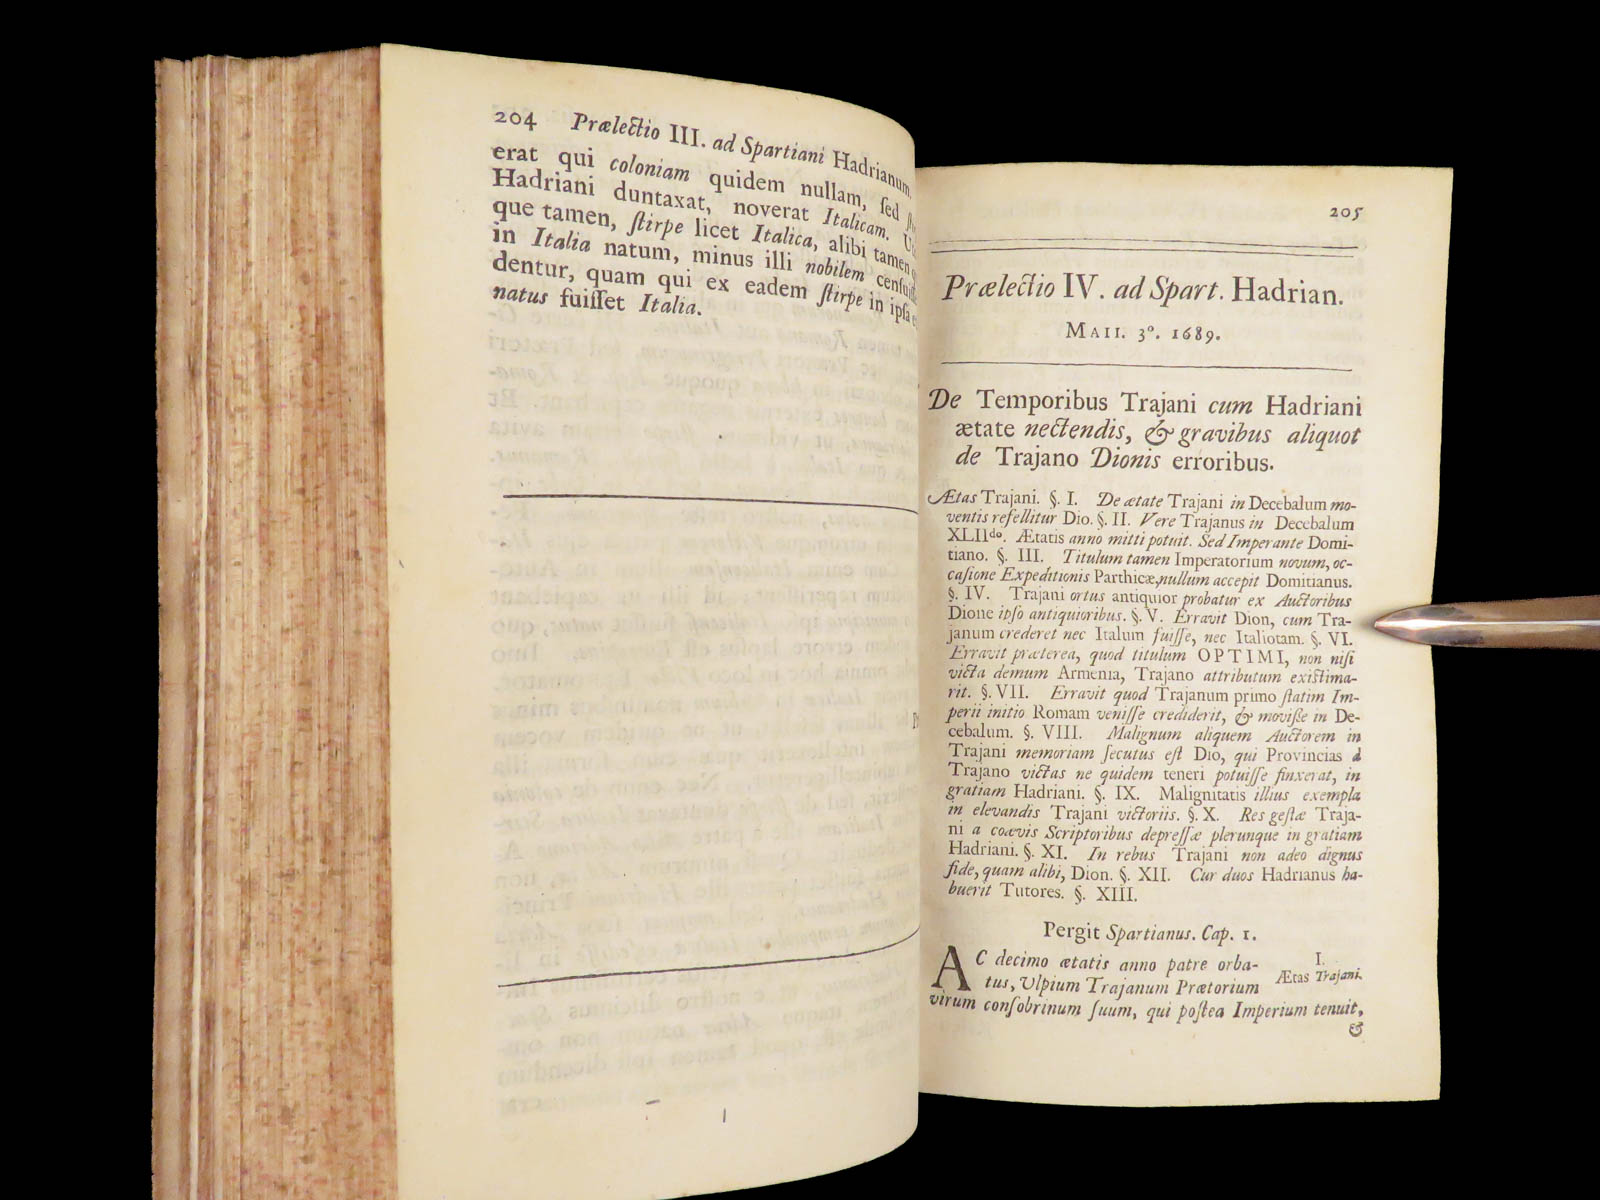 204 Prælectio III. ad Spartiani Hadrianum.
erat qui coloniam quidem nullam, ſed
Hadriani duntaxat, noverat Italicam.
que tamen, ſtirpe licet Italica, alibi tamen
in Italia natum, minus illi nobilem
dentur, quam qui ex eadem ſtirpe in ipſa
natus fuiſſet Italia.
205
Prælectio IV. ad Spart. Hadrian.
MAII. 3º. 1689.
De Temporibus Trajani cum Hadriani
ætate nectendis, & gravibus aliquot
de Trajano Dionis erroribus.
Ætas Trajani. §. I. De ætate Trajani in Decebalum mo-
ventis refellitur Dio. §. II. Vere Trajanus in Decebalum
XLIIdo. Ætatis anno mitti potuit. Sed Imperante Domi-
tiano. §. III. Titulum tamen Imperatorium novum, oc-
caſione Expeditionis Parthicæ, nullum accepit Domitianus.
§. IV. Trajani ortus antiquior probatur ex Auctoribus
Dione ipſo antiquioribus. §. V. Erravit Dion, cum Tra-
janum crederet nec Italum fuiſſe, nec Italiotam. §. VI.
Erravit præterea, quod titulum OPTIMI, non niſi
victa demum Armenia, Trajano attributum exiſtima-
rit. §. VII. Erravit quod Trajanum primo ſtatim Im-
perii initio Romam veniſſe crediderit, & moviſſe in De-
cebalum. §. VIII. Malignum aliquem Auctorem in
Trajani memoriam ſecutus eſt Dio, qui Provincias à
Trajano victas ne quidem teneri potuiſſe finxerat, in
gratiam Hadriani. §. IX. Malignitatis illius exempla
in elevandis Trajani victoriis. §. X. Res geſtæ Traja-
ni a coævis Scriptoribus depreſſæ plerunque in gratiam
Hadriani. §. XI. In rebus Trajani non adeo dignus
fide, quam alibi, Dion. §. XII. Cur duos Hadrianus ha-
buerit Tutores. §. XIII.
Pergit Spartianus. Cap. 1.
AC decimo ætatis anno patre orba-
tus, Ulpium Trajanum Prætorium
virum conſobrinum ſuum, qui poſtea Imperium tenuit,
&
I.
Ætas Trajani.